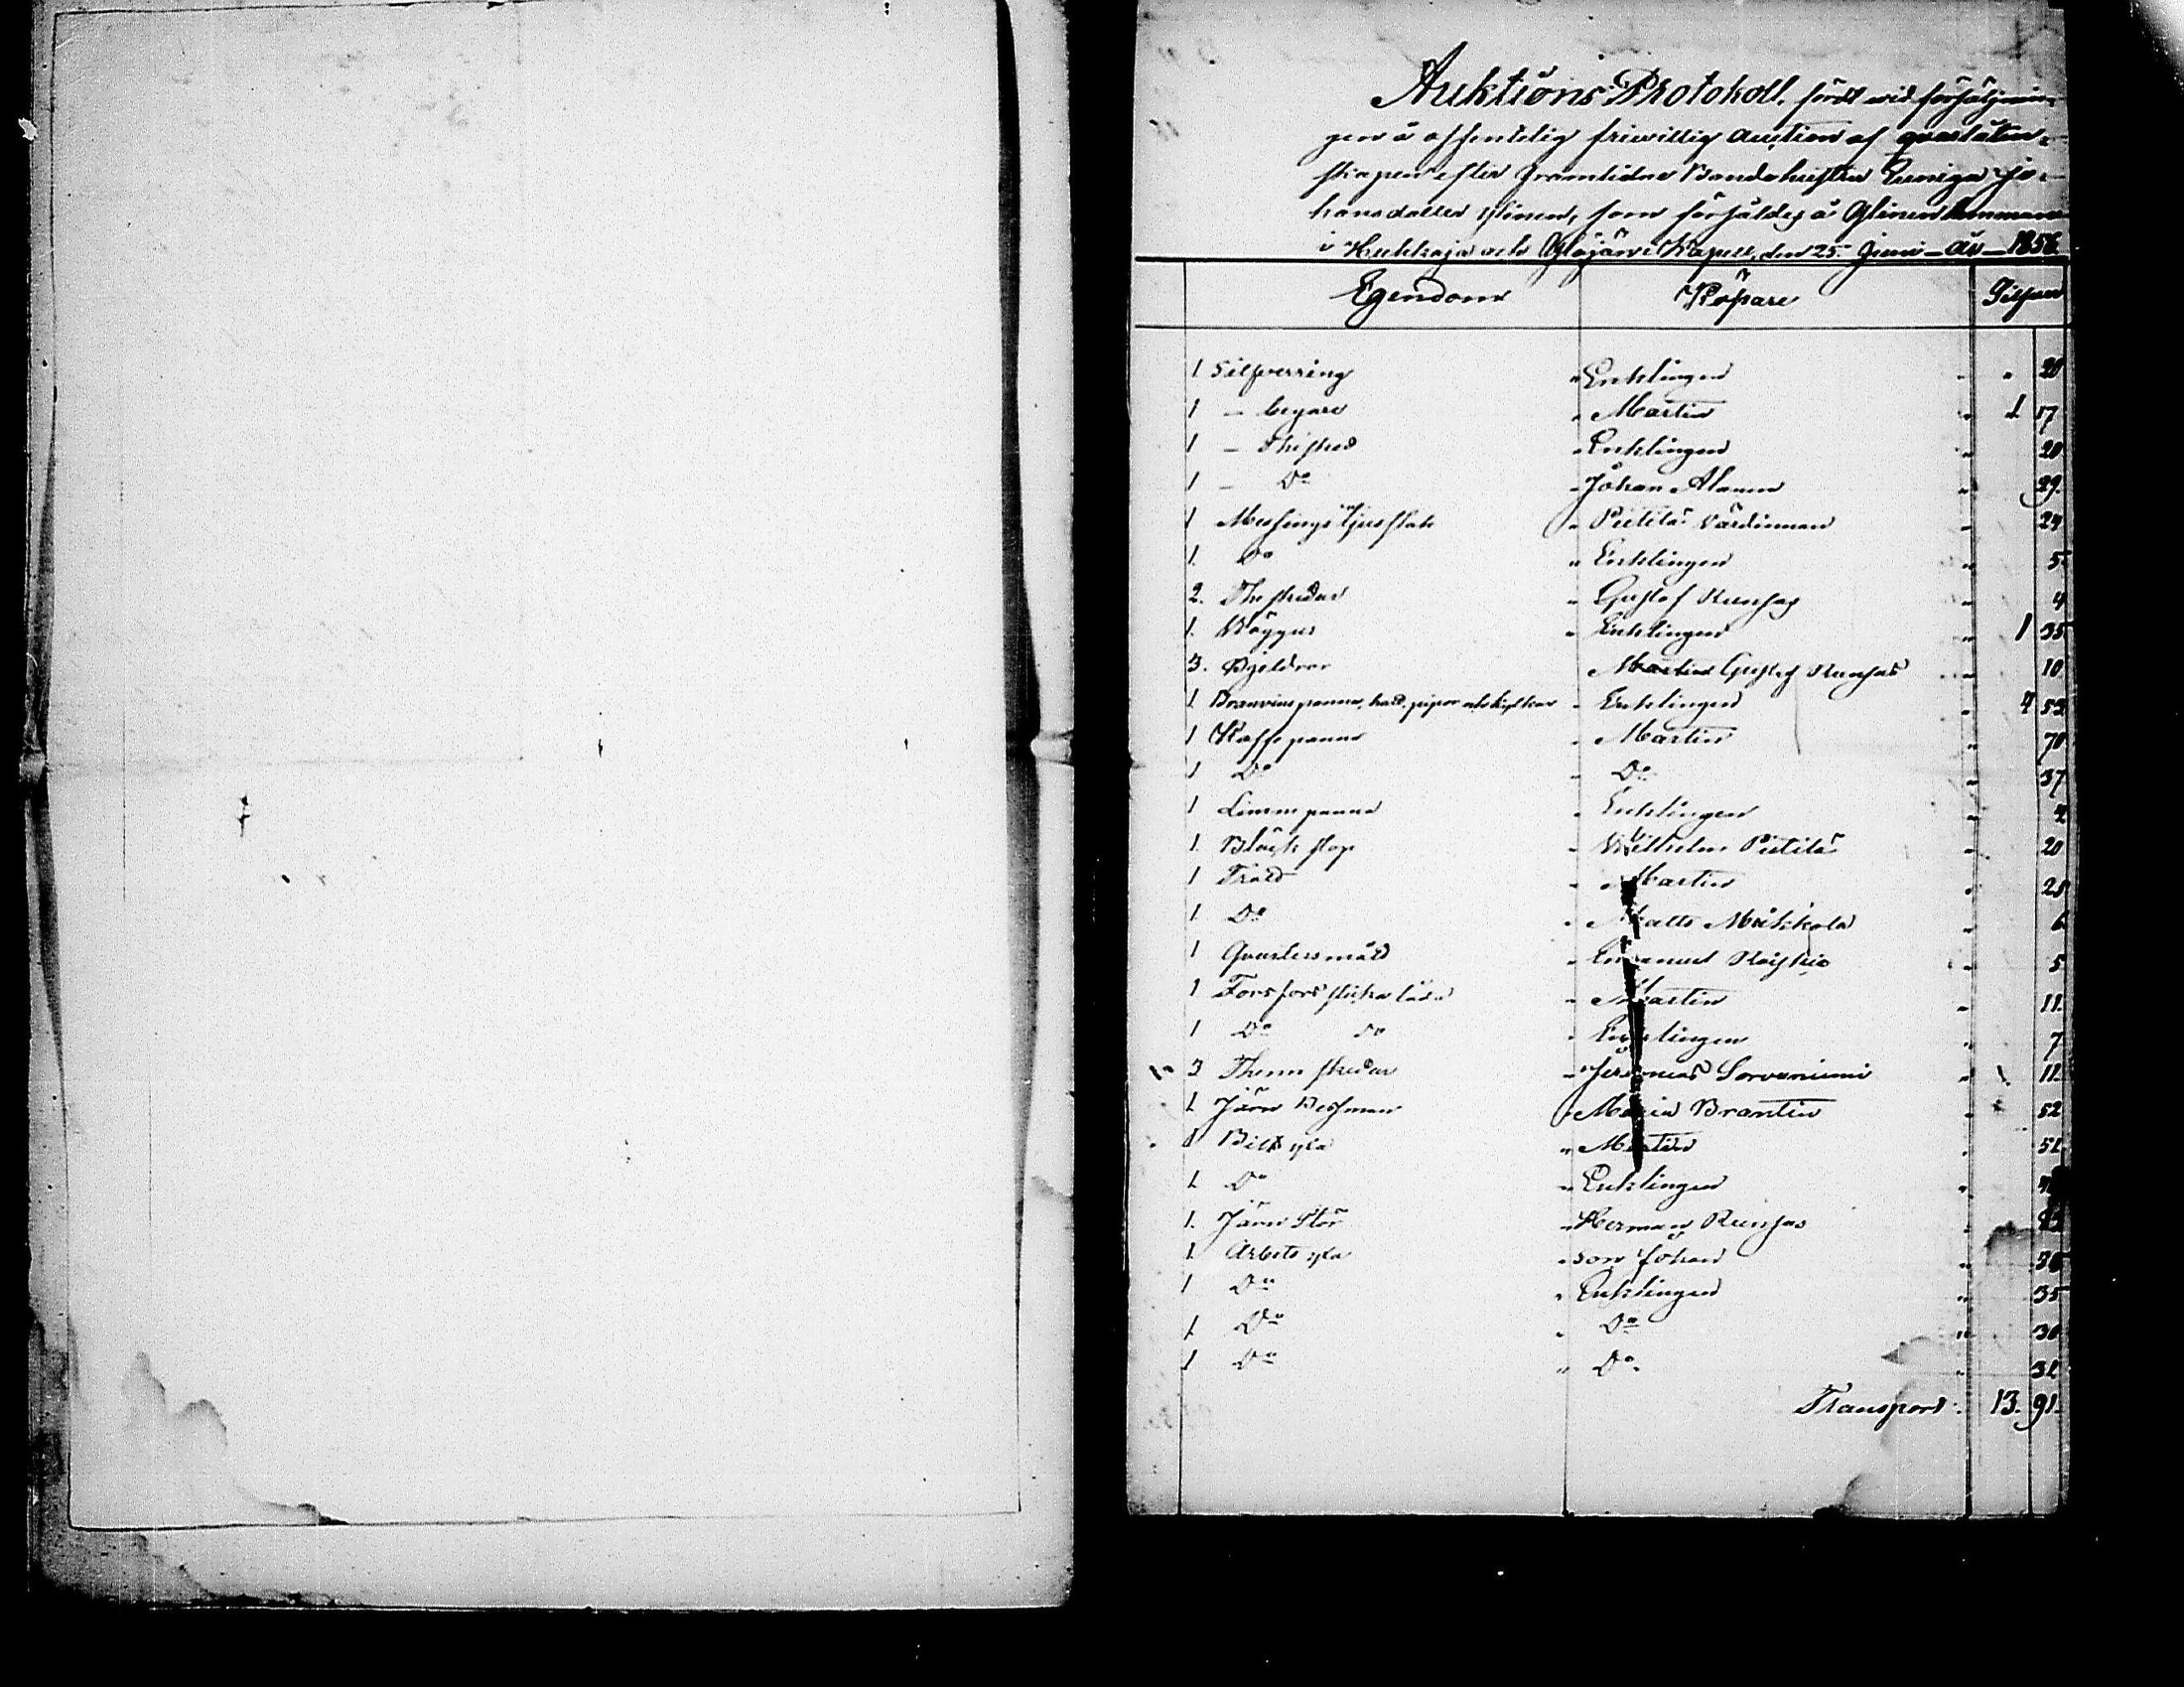 Auktions Protokoll, fördt wid försäljnin-
gen å offentelig friwillig auction af qvarlåten-
skapen efter framlidne Bondehustru
hansdotter Ylinen, som förhöldes å Ylinen hemman
i och Ylöjärvi Kapell, den 25 Juni år 1856
Egendom Köpare Silfver
1 Silfverring " Enklingen " " 20
1 — begare " Martin " 1 17
1 — Thesked " Enklingen " 20
1 — Do " Johan Alanen " 29
1 Messings ljusstak " Pietilä Värdinnan " 24
1. Do " Enklingen " 5
2. Theskedar " Gustaf Runsas " 4
1. Väggur " Enklingen " 1 35
3. Bjeldror Gustaf Runsas " 10
1 Branvinspanna, hatt, pipor och " Enklingen " 4 52
1 Kaffepanna " Martin " 70
1 Do " Do " 37
1 Limmpanna " Enklingen " 4
1. Bläck stop " Wilhelm Pietilä " 20
1 Tratt " Martin " 25
1 Do " Matts Mikkola " 6
1 Qvartersmått " Emanuel " 5
1 Forsfors sticke låda " Martin " 11.
1 Do do " Enklingen " 7
3 Thenn skedar " Jeremias Sorvaniemi " 11.
1. Järn Besman " Maria Brantin " 52
1 Bilyxa " Martin " 51
1. Do " Enklingen "
1. Järn Stör " Herman Runsas "
1. Arbets yxa " son Johan " 36
1 Do " Enklingen " 35
1. Do " Do " 30
1 Do " Do " 31
Transport: 13. 91.